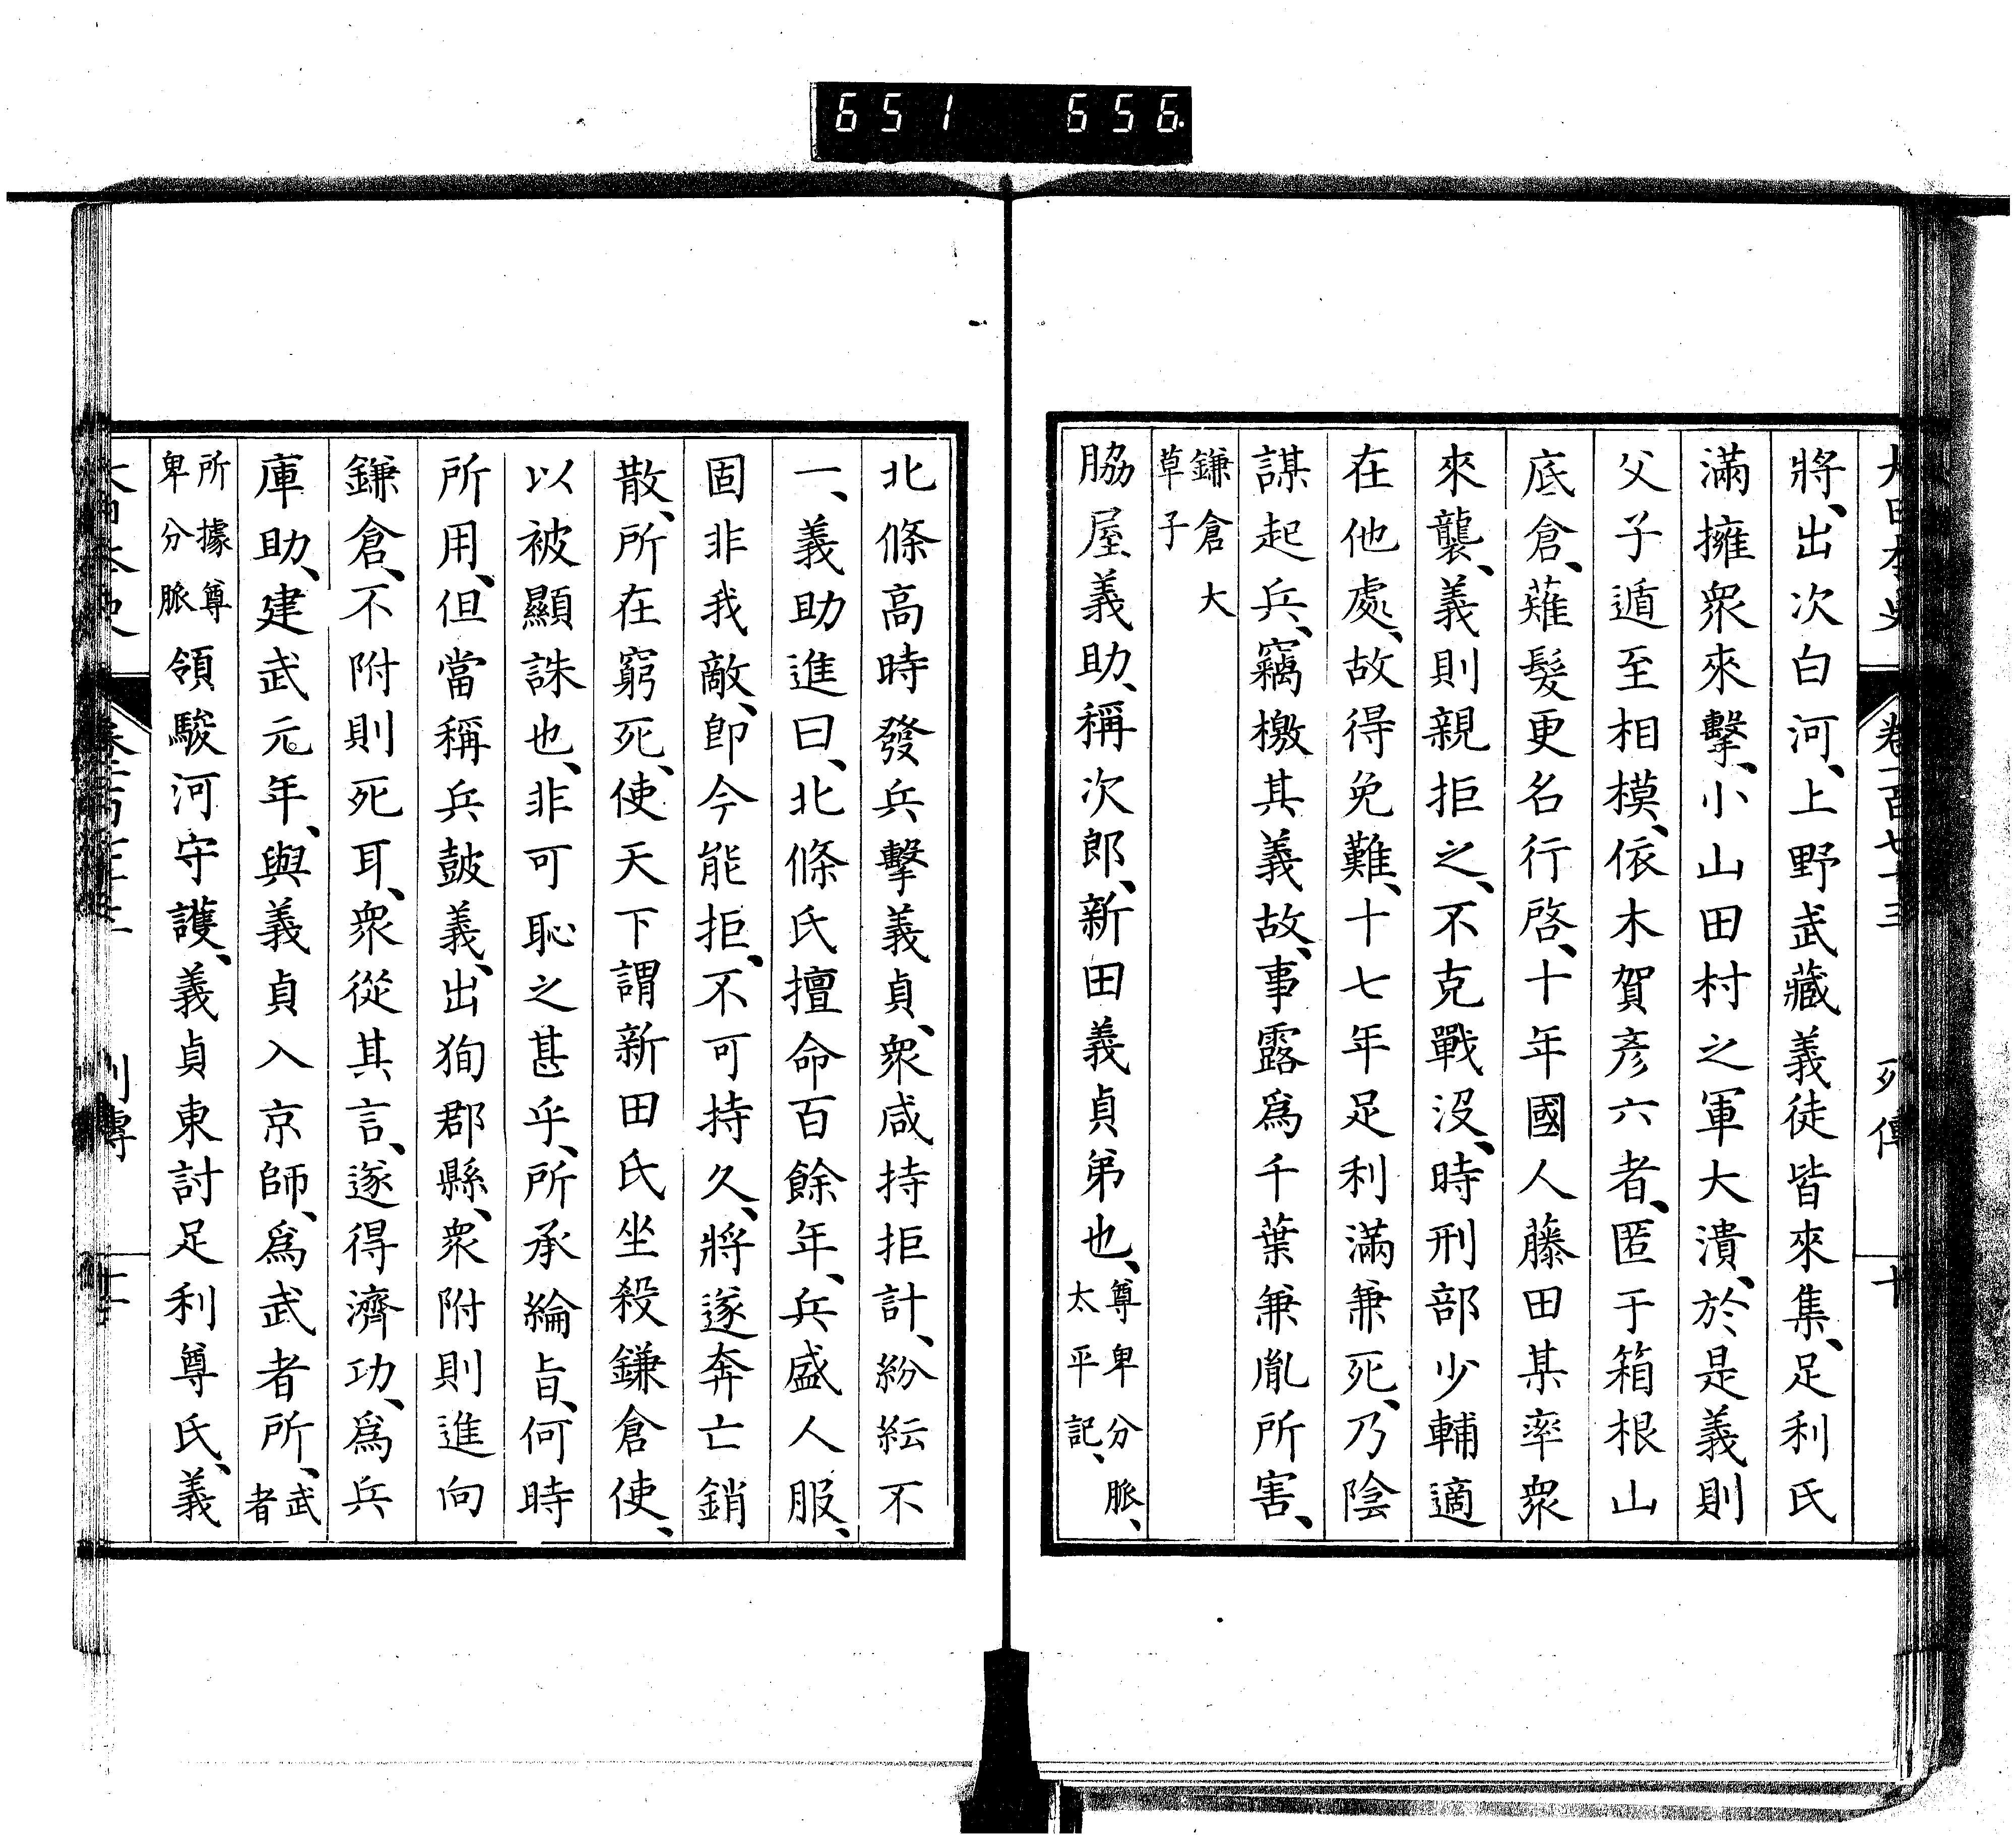 651 656
大日本史 卷一百七十三 列傳 十
將、出次白河、上野武藏義徒皆來集、足利氏
滿擁衆來擊、小山田村之軍大潰、於是義則
父子遁至相模、依木賀彥六者、匿于箱根山
底倉、薙髮更名行啓、十年國人藤田某率衆
來襲、義則親拒之、不克戰沒、時刑部少輔適
在他處、故得免難、十七年足利滿兼死、乃陰
謀起兵、竊檄其義故、事露爲千葉兼胤所害、
鎌倉大
草子
脇屋義助、稱次郎、新田義貞弟也、尊卑分脈、
太平記、
北條高時發兵擊義貞、衆咸持拒計、紛紜不
一、義助進曰、北條氏擅命百餘年、兵盛人服、
固非我敵、卽今能拒、不可持久、將遂奔亡銷
散、所在窮死、使天下謂新田氏坐殺鎌倉使、
以被顯誅也、非可恥之甚乎、所承綸旨、何時
所用、但當稱兵鼓義、出狥郡縣、衆附則進向
鎌倉、不附則死耳、衆從其言、遂得濟功、爲兵
庫助、建武元年、與義貞入京師、爲武者所、武
者
所據尊
卑分脈
領駿河守護、義貞東討足利尊氏、義
列傳